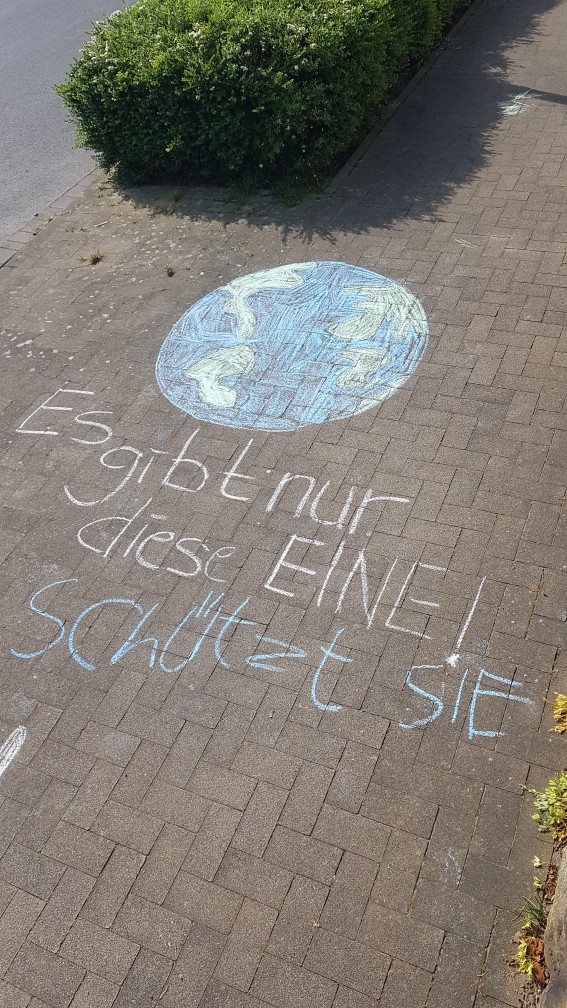 Es
gibt nur
diese EINE!
SCHÜTZT SIE